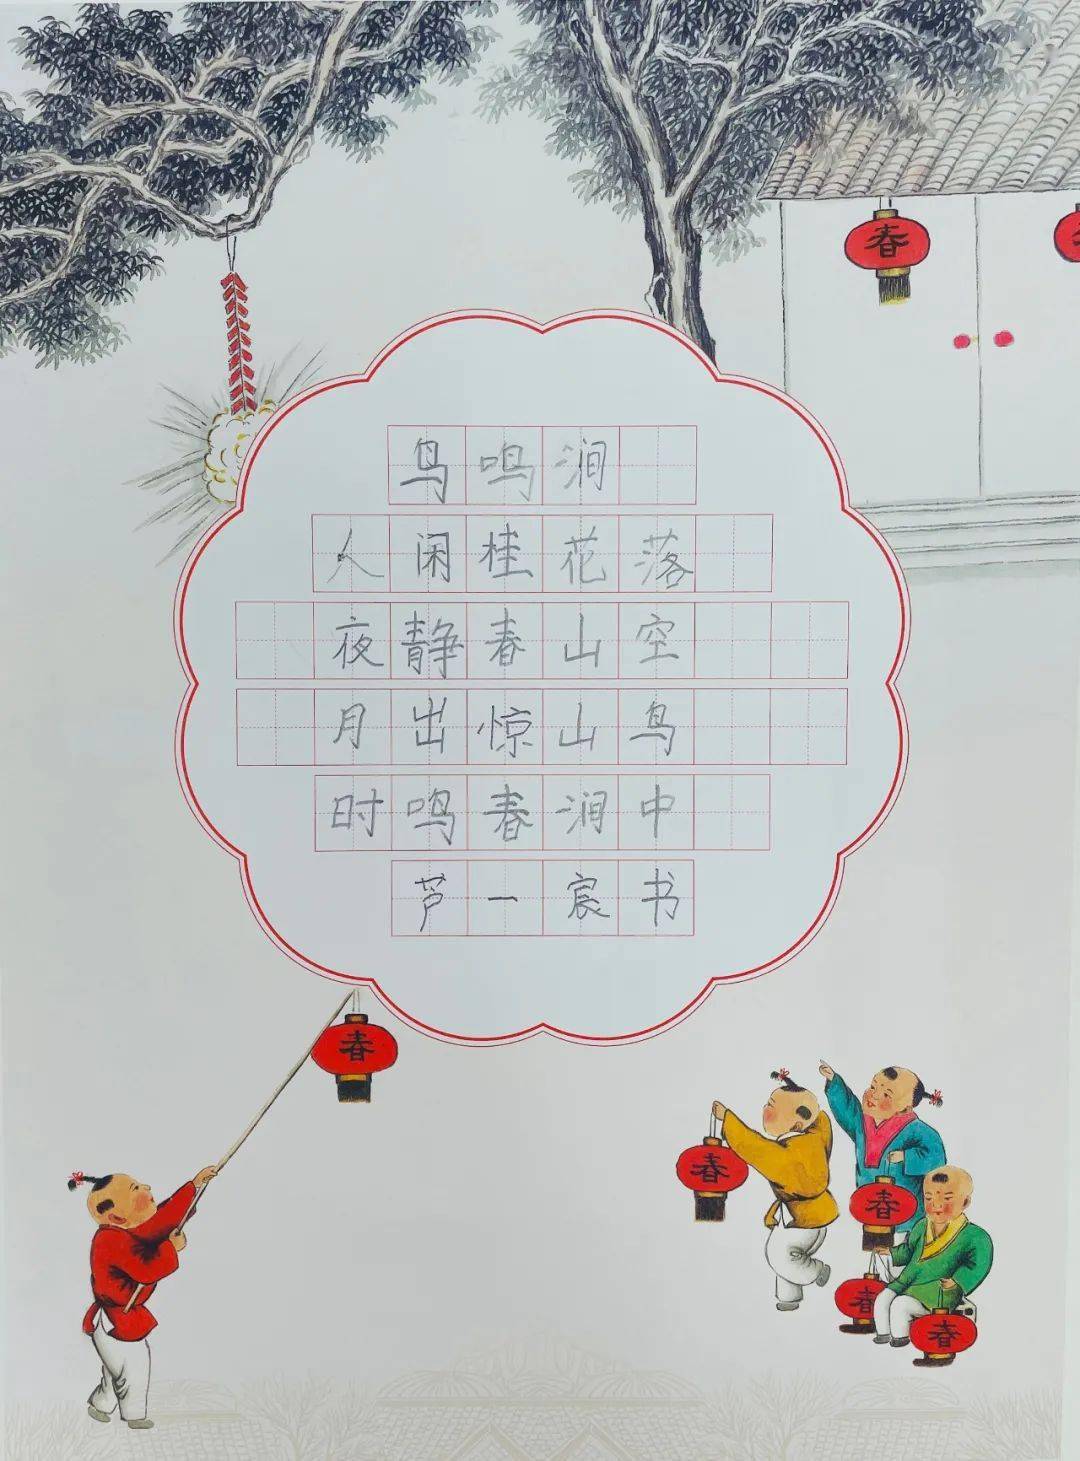 春
春
鸟鸣涧
人闲桂花落
夜静春山空
月出惊山鸟
时鸣春涧中
芦一宸书
春
春
春
春
春